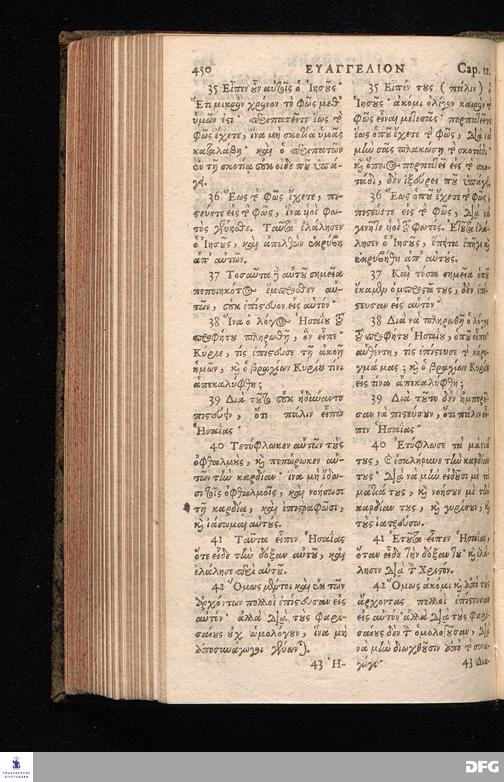 450 ΕΥΑΓΓΕΛΙΟΝ Cap. 12.
35 Εἶπεν οὖν αὐτοῖς ὁ Ἰησοῦς·
Ἔτι μικρὸν χρόνον τὸ φῶς μεθ᾽
ὑμῶν ἐστι· περιπατεῖτε ἕως τὸ
φῶς ἔχετε, ἵνα μὴ σκοτία ὑμᾶς
καταλάβῃ· καὶ ὁ περιπατῶν
ἐν τῇ σκοτίᾳ οὐκ οἶδε ποῦ ὑπά-
γει.
36 Ἕως τὸ φῶς ἔχετε, πι-
στεύετε εἰς τὸ φῶς, ἵνα υἱοὶ φω-
τὸς γένησθε. Ταῦτα ἐλάλησεν
ὁ Ἰησοῦς, καὶ ἀπελθὼν ἐκρύβη
ἀπ᾽ αὐτῶν.
37 Τοσαῦτα δὲ αὐτοῦ σημεῖα
πεποιηκότος ἔμπροσθεν αὐ-
τῶν, οὐκ ἐπίστευον εἰς αὐτόν·
38 Ἵνα ὁ λόγος Ἡσαΐου τοῦ
προφήτου πληρωθῇ, ὃν εἶπε·
Κύριε, τίς ἐπίστευσε τῇ ἀκοῇ
ἡμῶν, καὶ ὁ βραχίων Κυρίου τίνι
ἀπεκαλύφθη;
39 Διὰ τοῦτο οὐκ ἠδύναντο
πιστεύειν, ὅτι πάλιν εἶπεν
Ἡσαΐας·
40 Τετύφλωκεν αὐτῶν τοὺς
ὀφθαλμοὺς, καὶ πεπώρωκεν αὐ-
τῶν τὴν καρδίαν· ἵνα μὴ ἴδω-
σι τοῖς ὀφθαλμοῖς, καὶ νοήσωσι
τῇ καρδίᾳ, καὶ ἐπιστραφῶσι,
καὶ ἰάσωμαι αὐτούς.
41 Ταῦτα εἶπεν Ἡσαΐας
ὅτε εἶδε τὴν δόξαν αὐτοῦ, καὶ
ἐλάλησε περὶ αὐτοῦ.
42 Ὅμως μέντοι καὶ ἐκ τῶν
ἀρχόντων πολλοὶ ἐπίστευσαν εἰς
αὐτόν· ἀλλὰ διὰ τοὺς Φαρι-
σαίους οὐχ ὡμολόγουν, ἵνα μὴ
ἀποσυνάγωγοι γένων).
43 Ἠ-
35 Εἶπέν τους (πάλιν) ὁ
Ἰησοῦς· ἀκόμι ὀλίγον καιρὸν
φῶς εἶναι μετ᾽ ἐσᾶς· πορπατεῖτε
ἕως ὁποῦ ἔχετε τὸ φῶς, διὰ νὰ
μὴν σᾶς πλακώσῃ τὸ σκοτάδι·
καὶ ὅποιος πορπατεῖ εἰς τὸ σκο-
τάδι, δὲν ἐξεύρει ποῦ ὑπάγει.
36 Ἕως ὁποῦ ἔχετε τὸ φῶς,
πιστεύετε εἰς τὸ φῶς, διὰ νὰ
γενῆτε υἱοὶ τοῦ φωτός. Ἐτοῦτα ἐλά-
λησεν ὁ Ἰησοῦς, ἔπειτα ἐπῆγε καὶ
ἐκρυβήθη ἀπ᾽ αὐτούς.
37 Καὶ τόσα σημεῖα ὁποῦ
ἔκαμεν ὀμπρός τους, δὲν ἐπί-
στευσαν εἰς αὐτόν·
38 Διὰ νὰ πληρωθῇ ὁ λόγος
τοῦ προφήτου Ἡσαΐου, ὁποῦ εἶπε·
αὐθέντη, τίς ἐπίστευσε τὸ κήρυ-
γμά μας; καὶ ὁ βραχίων Κυρίου
εἰς τίνα ἀπεκαλύφθη;
39 Διὰ τοῦτο δὲν ἠμπορῆ-
σαν νὰ πιστεύσουν, ὅτι πάλιν εἶ-
πεν Ἡσαΐας·
40 Ἐτύφλωσε τὰ μάτιά
τους, καὶ ἐσκλήρωσε τὴν καρδίαν
τους· διὰ νὰ μὴν εἰδοῦσι μὲ τὰ
μάτιά τους, καὶ νοήσουν μὲ τὴν
καρδίαν τους, καὶ γυρίσουν, καὶ
τοὺς ἰατρεύσω.
41 Ἐτοῦτα εἶπεν Ἡσαΐας,
ὅταν εἶδε τὴν δόξαν του καὶ ἐλά-
λησεν διὰ τὸν Χριστόν.
42 Ὅμως ἀκόμι καὶ ἀπὸ τοὺς
ἄρχοντας πολλοὶ ἐπίστευσαν
εἰς αὐτόν· ἀλλὰ διὰ τοὺς Φαρι-
σαίους δὲν τὸν ὁμολογοῦσαν, διὰ
νὰ μὴν διωχθοῦσιν ἀπὸ τὸ συνα-
γώγι·
43 Δια-
FRANCKESCHE
STIFTUNGEN
DFG